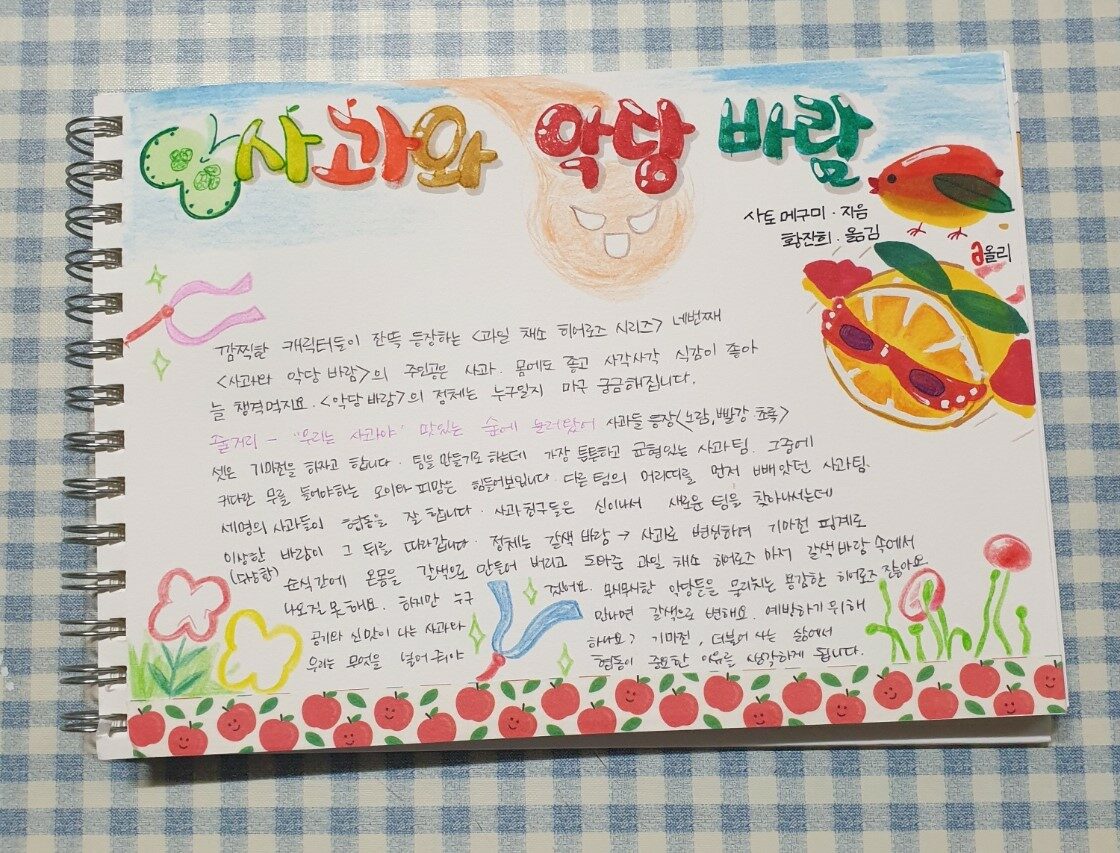 사과와 악당 바람
사토 메구미 · 지음
황진희 · 옮김
올리
깜찍한 캐릭터들이 잔뜩 등장하는 <과일 채소 히어로즈 시리즈> 네번째
<사과와 악당 바람>의 주인공은 사과. 몸에도 좋고 사각사각 식감이 좋아
늘 챙겨먹지요. <악당 바람>의 정체는 누구일지 마구 궁금해집니다.
줄거리 - "우리는 사과야" 맛있는 숲에 사과들 등장<노랑, 빨강 초록>
셋은 기마전을 하자고 합니다. 팀을 만들기로 하는데 가장 튼튼하고 균형있는 사과팀. 그중에
커다란 무를 들어야하는 오이와 피망은 힘들어보입니다. 다른 팀의 머리띠를 먼저 빼앗았던 사과팀.
세명의 사과들이 협동을 잘 합니다. 사과친구들은 신이나서 새로운 팀을 찾아나서는데
이상한 바람이 그 뒤를 따라갑니다. 정체는 갈색 바람 → 사과로 변신하여 기마전 핑계로
(당황) 순식간에 온몸을 갈색으로 만들어 버리고 도와준 과일 채소 히어로즈 마저 갈색바람 속에서
나오질 못해요. 하지만 누구 무시무시한 악당들을 물리치는 용감한 히어로즈 잖아요
공기와 만나면 갈색으로 변해요. 예방하기 위해
신맛이 나는 사과와
우리는 무엇을 넣어줘야 하나요? 기마전, 더불어 사는 삶에서
협동이 중요한 이유를 생각하게 됩니다.